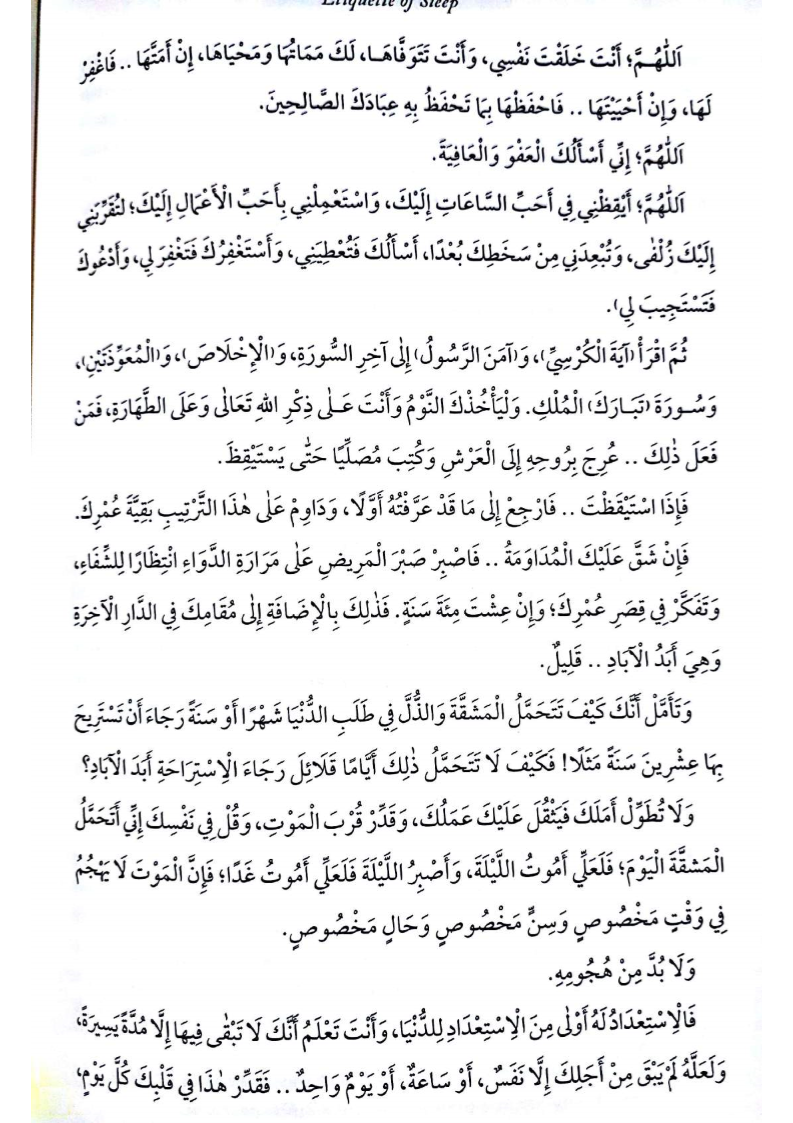 Etiquette of Sleep
اَللّٰهُمَّ؛ أَنْتَ خَلَقْتَ نَفْسِي، وَأَنْتَ تَتَوَفَّاهَا، لَكَ مَمَاتُهَا وَمَحْيَاهَا، إِنْ أَمَتَّهَا .. فَاغْفِرْ
لَهَا، وَإِنْ أَحْيَيْتَهَا .. فَاحْفَظْهَا بِمَا تَحْفَظُ بِهِ عِبَادَكَ الصَّالِحِينَ.
اَللّٰهُمَّ؛ إِنِّي أَسْأَلُكَ الْعَفْوَ وَالْعَافِيَةَ.
اَللّٰهُمَّ؛ أَيْقِظْنِي فِي أَحَبِّ السَّاعَاتِ إِلَيْكَ، وَاسْتَعْمِلْنِي بِأَحَبِّ الْأَعْمَالِ إِلَيْكَ؛ لِتُقَرِّبَنِي
إِلَيْكَ زُلْفٰى، وَتُبْعِدَنِي مِنْ سَخَطِكَ بُعْدًا، أَسْأَلُكَ فَتُعْطِيَنِي، وَأَسْتَغْفِرُكَ فَتَغْفِرَ لِي، وَأَدْعُوكَ
فَتَسْتَجِيبَ لِي).
ثُمَّ اقْرَأْ (آيَةَ الْكُرْسِيِّ)، وَ(آمَنَ الرَّسُولُ) إِلٰى آخِرِ السُّورَةِ، وَ(الْإِخْلَاصَ)، وَ(الْمُعَوِّذَتَيْنِ)،
وَسُورَةَ (تَبَارَكَ) الْمُلْكِ. وَلْيَأْخُذْكَ النَّوْمُ وَأَنْتَ عَلٰى ذِكْرِ اللهِ تَعَالٰى وَعَلَى الطَّهَارَةِ، فَمَنْ
فَعَلَ ذٰلِكَ .. عُرِجَ بِرُوحِهِ إِلَى الْعَرْشِ وَكُتِبَ مُصَلِّيًا حَتّٰى يَسْتَيْقِظَ.
فَإِذَا اسْتَيْقَظْتَ .. فَارْجِعْ إِلٰى مَا قَدْ عَرَّفْتُهُ أَوَّلًا، وَدَاوِمْ عَلٰى هٰذَا التَّرْتِيبِ بَقِيَّةَ عُمْرِكَ.
فَإِنْ شَقَّ عَلَيْكَ الْمُدَاوَمَةُ .. فَاصْبِرْ صَبْرَ الْمَرِيضِ عَلٰى مَرَارَةِ الدَّوَاءِ انْتِظَارًا لِلشِّفَاءِ،
وَتَفَكَّرْ فِي قِصَرِ عُمْرِكَ؛ وَإِنْ عِشْتَ مِئَةَ سَنَةٍ. فَذٰلِكَ بِالْإِضَافَةِ إِلٰى مُقَامِكَ فِي الدَّارِ الْآخِرَةِ
وَهِيَ أَبَدُ الْآبَادِ .. قَلِيلٌ.
وَتَأَمَّلْ أَنَّكَ كَيْفَ تَتَحَمَّلُ الْمَشَقَّةَ وَالذُّلَّ فِي طَلَبِ الدُّنْيَا شَهْرًا أَوْ سَنَةً رَجَاءَ أَنْ تَسْتَرِيحَ
بِهَا عِشْرِينَ سَنَةً مَثَلًا! فَكَيْفَ لَا تَتَحَمَّلُ ذٰلِكَ أَيَّامًا قَلَائِلَ رَجَاءَ الْاِسْتِرَاحَةِ أَبَدَ الْآبَادِ؟
وَلَا تُطَوِّلْ أَمَلَكَ فَيَثْقُلَ عَلَيْكَ عَمَلُكَ، وَقَدِّرْ قُرْبَ الْمَوْتِ، وَقُلْ فِي نَفْسِكَ إِنِّي أَتَحَمَّلُ
الْمَشَقَّةَ الْيَوْمَ؛ فَلَعَلِّي أَمُوتُ اللَّيْلَةَ، وَأَصْبِرُ اللَّيْلَةَ فَلَعَلِّي أَمُوتُ غَدًا؛ فَإِنَّ الْمَوْتَ لَا يَهْجُمُ
فِي وَقْتٍ مَخْصُوصٍ وَسِنٍّ مَخْصُوصٍ وَحَالٍ مَخْصُوصٍ.
وَلَا بُدَّ مِنْ هُجُومِهِ.
فَالْاِسْتِعْدَادُ لَهُ أَوْلٰى مِنَ الْاِسْتِعْدَادِ لِلدُّنْيَا، وَأَنْتَ تَعْلَمُ أَنَّكَ لَا تَبْقٰى فِيهَا إِلَّا مُدَّةً يَسِيرَةً،
وَلَعَلَّهُ لَمْ يَبْقَ مِنْ أَجَلِكَ إِلَّا نَفَسٌ، أَوْ سَاعَةٌ، أَوْ يَوْمٌ وَاحِدٌ .. فَقَدِّرْ هٰذَا فِي قَلْبِكَ كُلَّ يَوْمٍ،